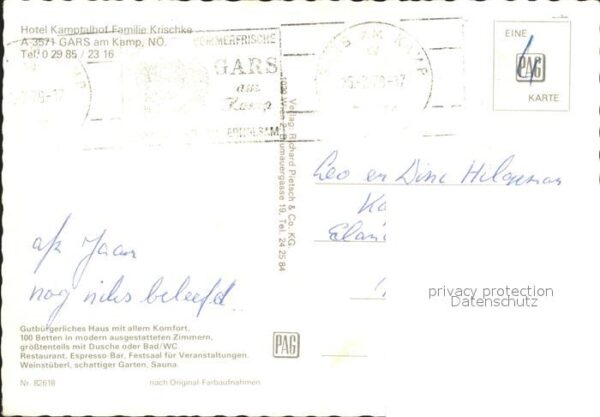 Hotel Kamptalhof Familie Krischke
A-3571 GARS am Kamp, NÖ.
Tel. 0 29 85 / 23 16
SOMMERFRISCHE
GARS
am
Kamp
GARS AM KAMP
EINE
PAG
KARTE
Verlag: Richard Pietsch & Co. KG.
1030 Wien 2, Blumauergasse 19, Tel. 24 25 84
Leo en Dini
Ka
privacy protection
Datenschutz
nog niks beleefd.
Gutbürgerliches Haus mit allem Komfort.
100 Betten in modern ausgestatteten Zimmern,
größtenteils mit Dusche oder Bad/WC.
Restaurant, Espresso-Bar, Festsaal für Veranstaltungen.
Weinstüberl, schattiger Garten, Sauna.
PAG
Nr. 82618
nach Original-Farbaufnahmen